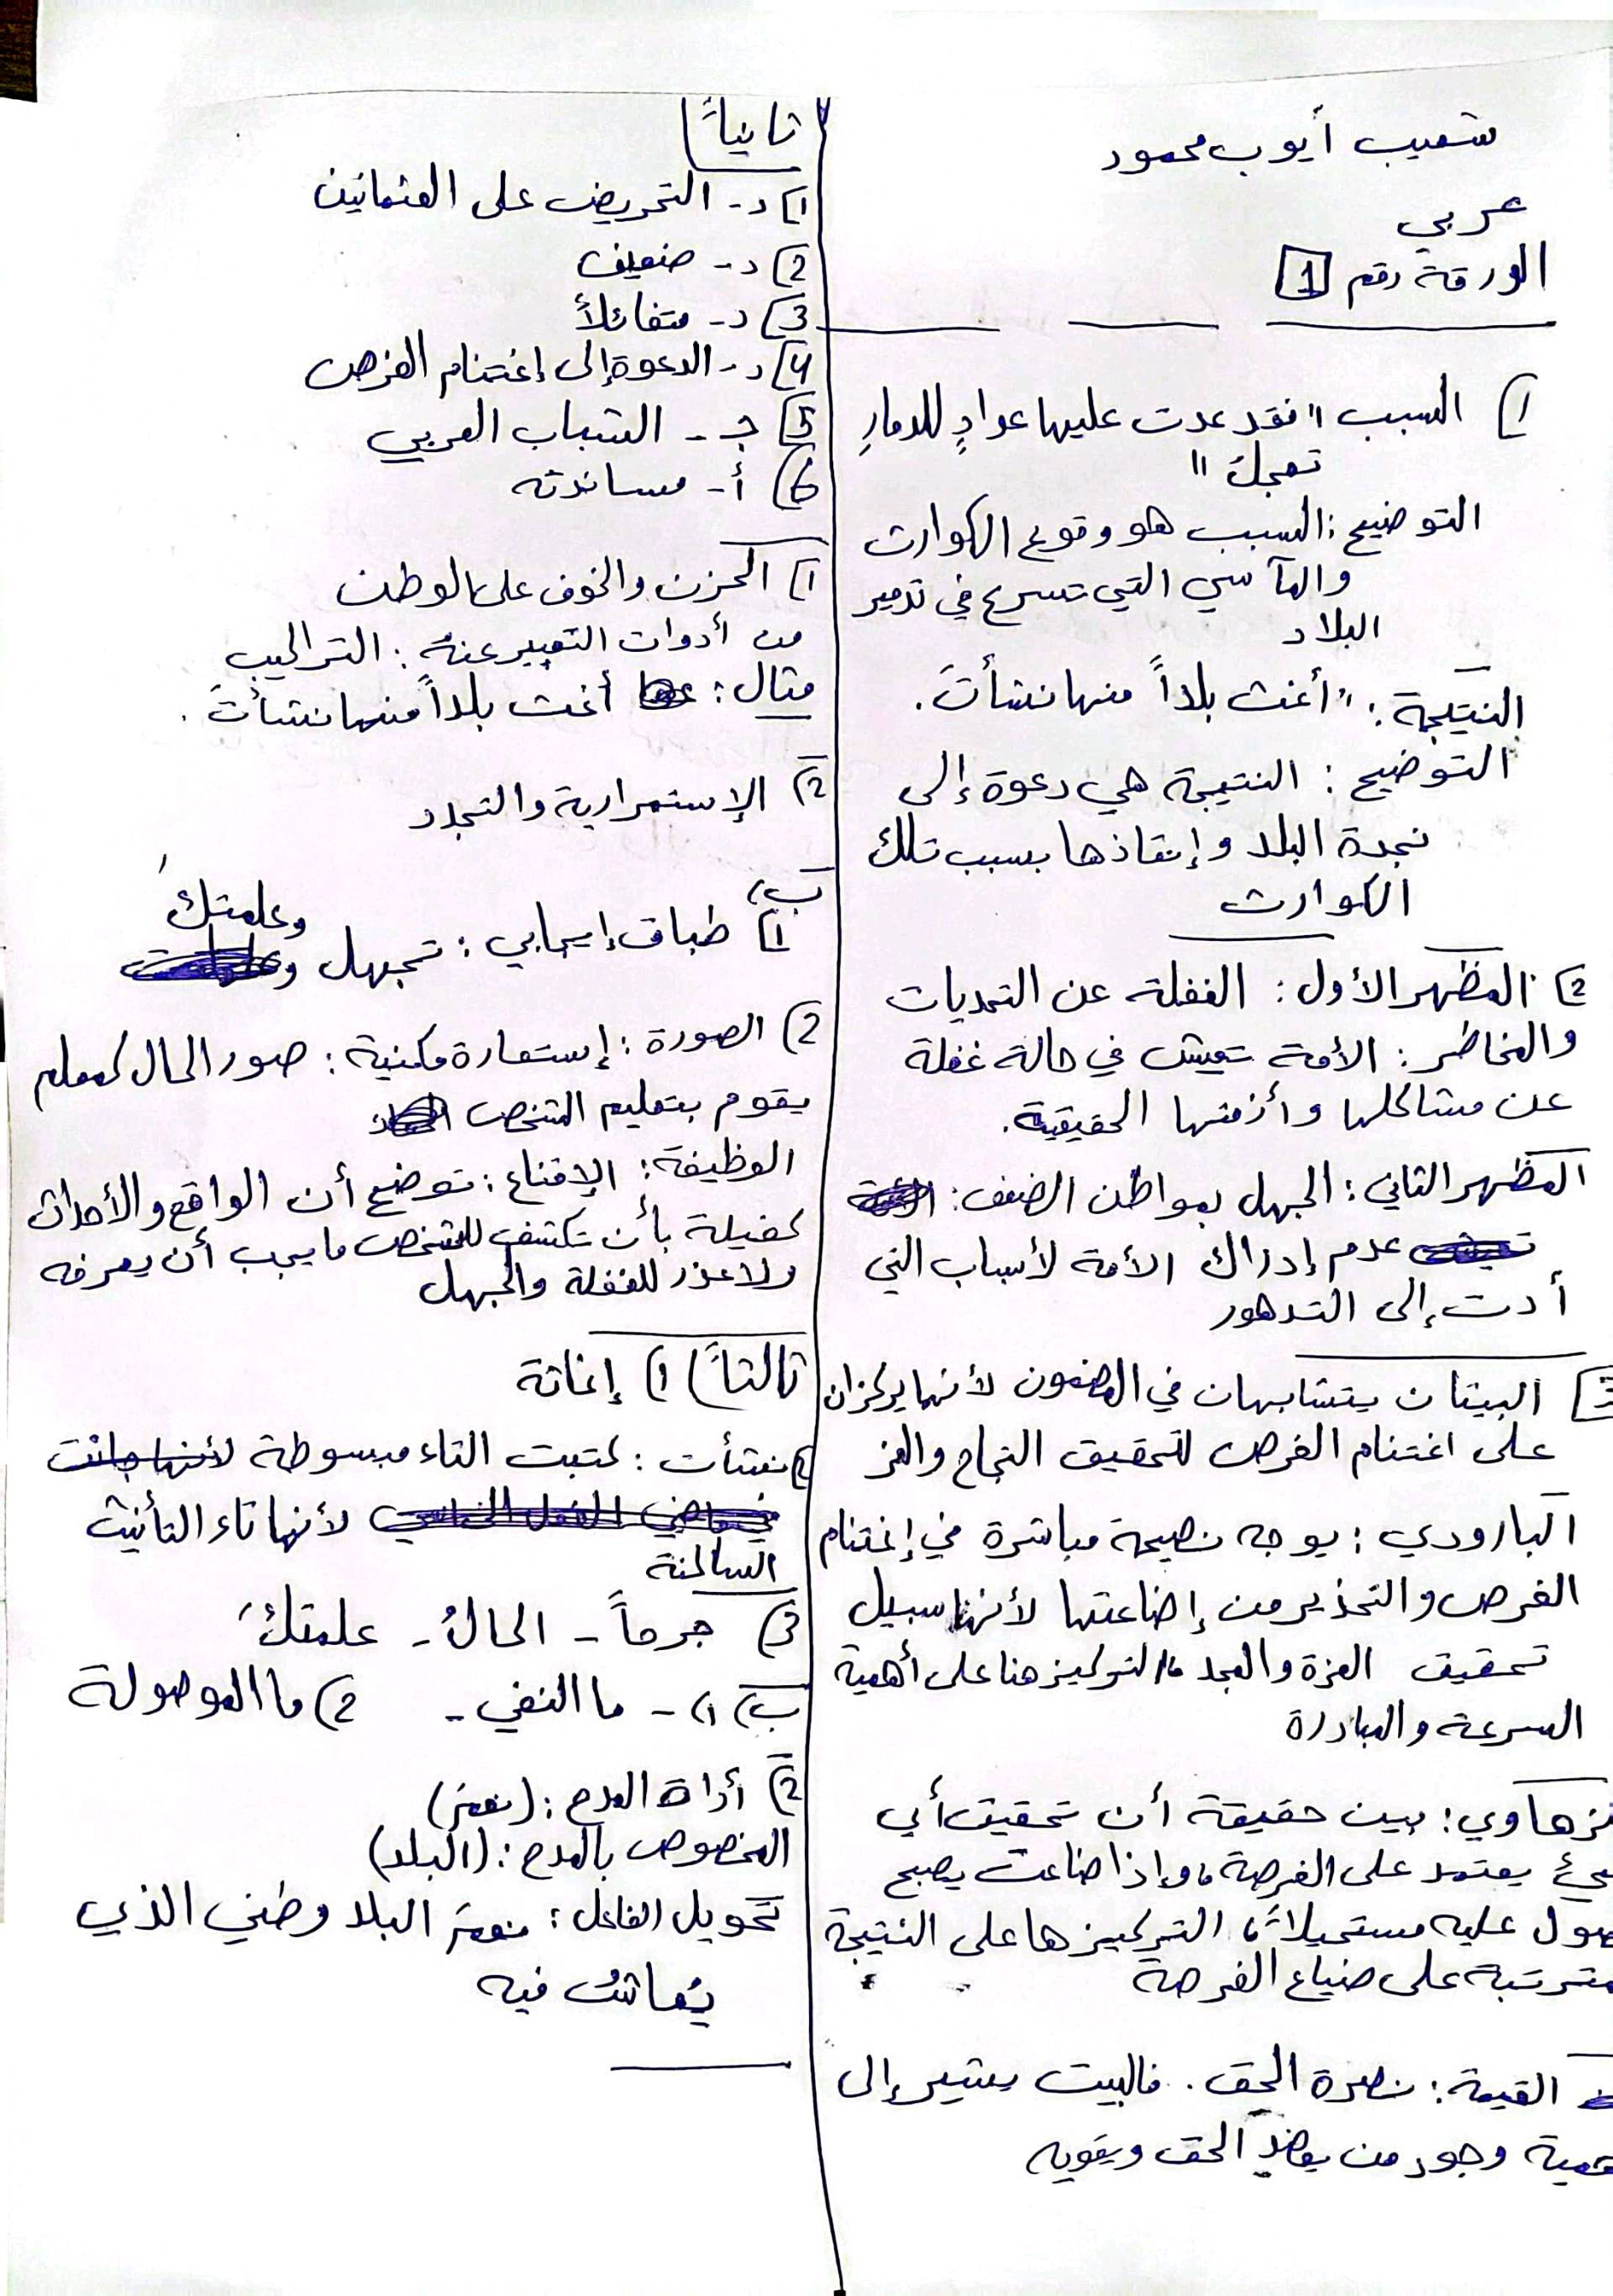 شعيب أيوب محمود
عربي
الورقة رقم 1
1) السبب "فقد عدت عليها عوادٍ للدمارِ
تعجلُ"
التوضيح: السبب هو وقوع الكوارث
والمآسي التي تسرع في تدمير
البلاد
النتيجة: "أغث بلداً منها نشأتَ.
التوضيح: النتيجة هي دعوة إلى
نجدة البلد وإنقاذها بسبب تلك
الكوارث
2) المظهر الأول: الغفلة عن التحديات
والمخاطر: الأمة تعيش في حالة غفلة
عن مشاكلها وأزمتها الحقيقية.
المظهر الثاني: الجهل بمواطن الضعف:
عدم إدراك الأمة لأسباب التي
أدت إلى التدهور
3) البيتان يتشابهان في المضمون لأنهما يركزان
على اغتنام الفرص لتحقيق النجاح والعز
البارودي: يوجه نصيحة مباشرة في إغتنام
الفرص والتحذير من إضاعتها لأنها سبيل
تحقيق العزة والمجد، التركيز هنا على أهمية
السرعة والمبادرة
زهاوي: يبين حقيقة أن تحقيق أي
يعتمد على الفرصة، وإذا ضاعت يصبح
عليه مستحيلاً، التركيز ها على النتيجة
على ضياع الفرصة
القيمة: نصرة الحق. فالبيت يشير إلى
وجود من يعاضد الحق ويقويه
ثانياً)
1) د- التحريض على العثمانين
2) د- ضعيف
3) د- متفائلاً
4) د- الدعوة إلى إغتنام الفرص
5) جـ - الشباب العربي
6) أ- مساندته
1) الحزن والخوف على الوطن
من أدوات التعبير عنه: التراكيب
مثال: أغث بلداً منها نشأتَ.
2) الإستمرارية والتجدد
ب)
1) طباق إيجابي: تجهل وعلمتكَ
2) الصورة: إستعارة مكنية: صور الحال كمعلم
يقوم بتعليم الشخص
الوظيفة: الإقناع: توضح أن الواقع والأحداث
كفيلة بأن تكشف للشخص ما يجب أن يعرفه
ولا عذر للغفلة والجهل
ثالثاً) 1) إغاثة
2) نشأت: كتبت التاء مبسوطة لأنها جائت
لأنها تاء التأنيث
الساكنة
3) جرماً - الحالُ - علمتكَ
ب) 1) - ما النفي - 2) ما الموصولة
2) أداة المدح: (نعمَ)
المخصوص بالمدح: (البلد)
تحويل الفاعل: نعمَ البلد وطني الذي
يُعاشُ فيه